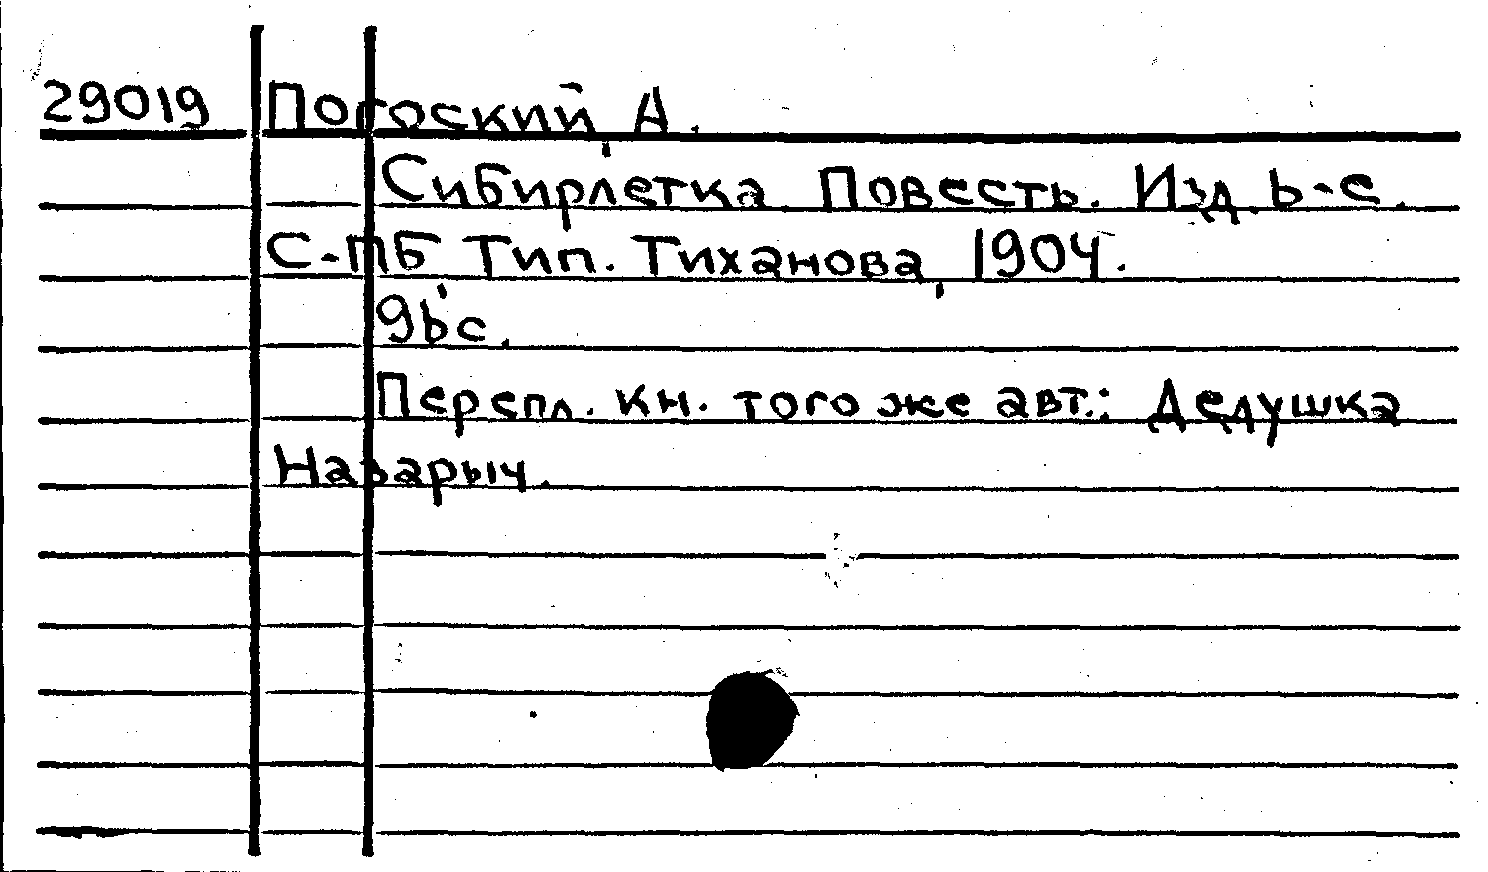 29019 Погоский, А.
Сибирлетка. Повесть. Изд. 6-е.
С-ПБ Тип. Тиханова, 1904.
96 с.
Перепл. кн. того же авт.: Дедушка
Назарыч.